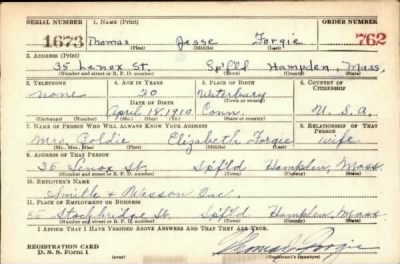 SERIAL NUMBER 1. NAME (Print) ORDER NUMBER
1673 Thomas Jesse Forgie 762
(First) (Middle) (Last)
2. ADDRESS (Print)
35 Lenox St. Spf'ld Hampden, Mass.
(Number and street or R. F. D. number) (Town) (County) (State)
3. TELEPHONE 4. AGE IN YEARS 5. PLACE OF BIRTH 6. COUNTRY OF CITIZENSHIP
none 30 Waterbury
DATE OF BIRTH (Town or county)
April 18, 1910 Conn. U. S. A.
(Exchange) (Number) (Mo.) (Day) (Yr.) (State or country)
7. NAME OF PERSON WHO WILL ALWAYS KNOW YOUR ADDRESS 8. RELATIONSHIP OF THAT PERSON
Mrs. Goldie Elizabeth Forgie wife
(Mr., Mrs., Miss) (First) (Middle) (Last)
9. ADDRESS OF THAT PERSON
35 Lenox St. Spf'ld Hampden, Mass.
(Number and street or R. F. D. number) (Town) (County) (State)
10. EMPLOYER'S NAME
Smith & Wesson Inc.
11. PLACE OF EMPLOYMENT OR BUSINESS
Stockbridge St. Spf'ld Hampden, Mass.
(Number and street or R. F. D. number) (Town) (County) (State)
I AFFIRM THAT I HAVE VERIFIED ABOVE ANSWERS AND THAT THEY ARE TRUE.
REGISTRATION CARD
D. S. S. Form 1 Thomas Forgie
(Registrant's signature)